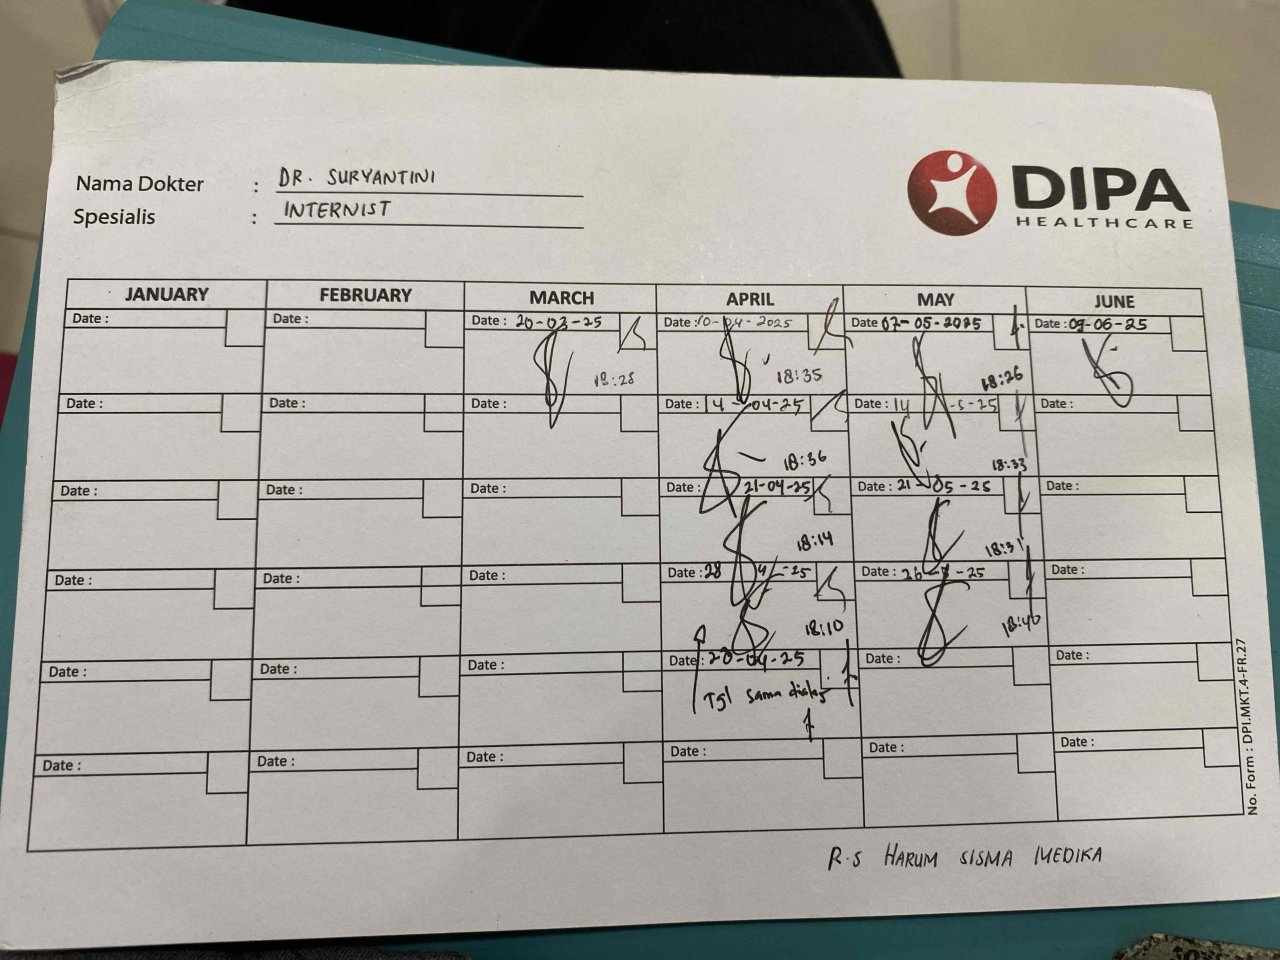 Nama Dokter : DR. SURYANTINI
Spesialis : INTERNIST
DIPA
HEALTHCARE
JANUARY FEBRUARY MARCH APRIL MAY JUNE
Date : Date : Date : 20-03-25 Date : 10-04-2025 Date 07-05-2025 Date : 09-06-25
18:28 18:35 18:26
Date : Date : Date : Date : 14-04-25 Date : 14-5-25 Date :
18:36 18:33
Date : Date : Date : Date : 21-04-25 Date : 21-05-25 Date :
18:14 18:31
Date : Date : Date : Date : 28 4-25 Date : 26-5-25 Date :
18:10 18:40
Date : Date : Date : Date : 20-04-25 Date : Date :
Tgl sama
Date : Date : Date : Date : Date : Date :
No. Form : DPI.MKT.4-FR.27
R.S HARUM SISMA MEDIKA